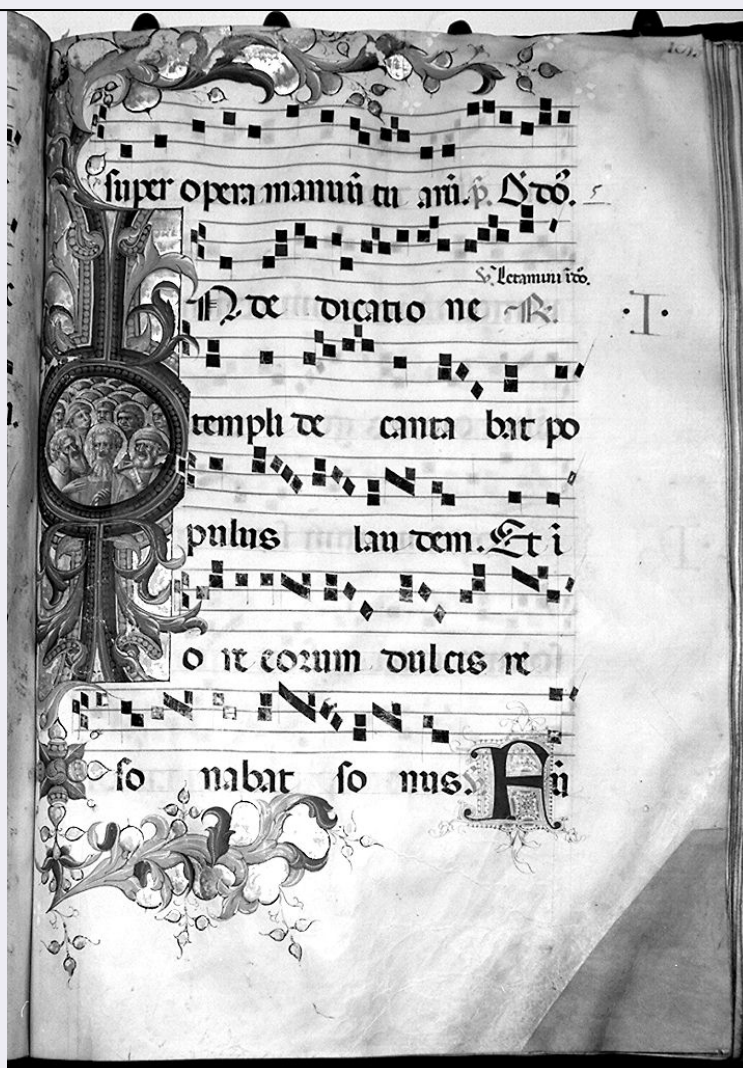 super opera manuū tu arū. p. O do. 5
℣. Letamini ī dō.
IN de dicatio ne R. ·I·
templi de canta bat po
pulus lau dem. Et i
o re eorum dulcis re
so nabat so nus. Fū